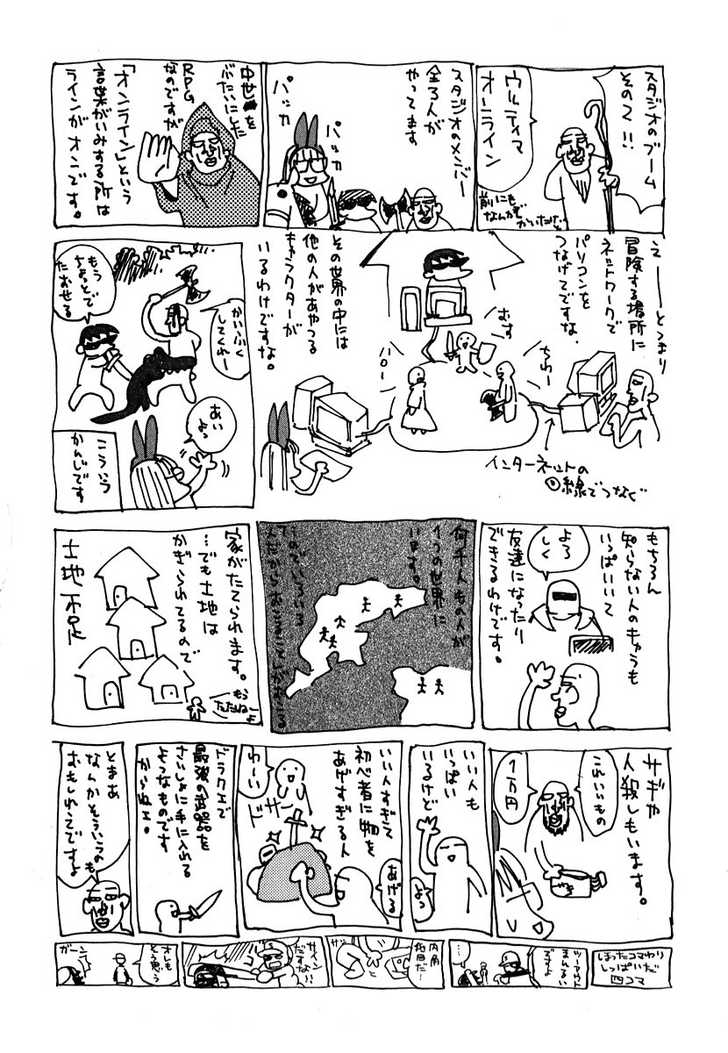 スタジオのブーム
その2!!
ウルティマ
オーライン
前にも
なんかで
かいたけど
スタジオのメンバー
全3人が
やってます
パッカ
パッカ
中世を
ぶたいにした
RPG
なのですが
「オンライン」という
言葉がいみする所は
ラインがオンです。
えーーとつまり
冒険する場所に
ネットワークで
パソコンを
つなげてですな、
ちわー
むす
パロー
インターネットの
線でつなぐ
その世界の中には
他の人があやつる
キャラクターが
いるわけですな。
かいふく
してくれー
もう
ちょっとで
たおせる
あい
よっ
こういう
かんじです
もちろん
知らない人のキャラも
いっぱいいて
友達になったり
できるわけです。
よろ
しく
何千人もの人が
1つの世界に
います。
家がたてられます。
…でも土地は
かぎられてるので
土地不足
もう
たたねーよ
サギや
人殺しもいます。
これいいもの
1万円
いい人も
いっぱい
いるけど
よっ
いい人すぎて
初心者に物を
あげすぎる人
あげる
わーい
ドサッ
ドラクエで
最強の武器を
さいしょに手に入れる
ようなものです
からねェ。
とまあ
なんかそういうのも
おもしろってですよ
しっぱいだ
四コマ
ツーアウト
まんるい
ですよ
…
内角
サイン
だすな!!
オレも
そう思う
ガーン